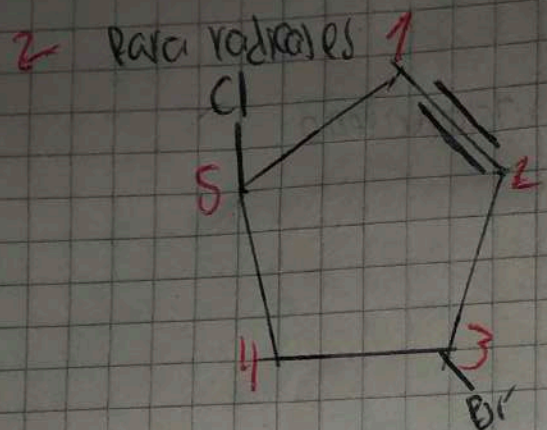 2- Para radicales 1
Cl
5
2
4
3
Br